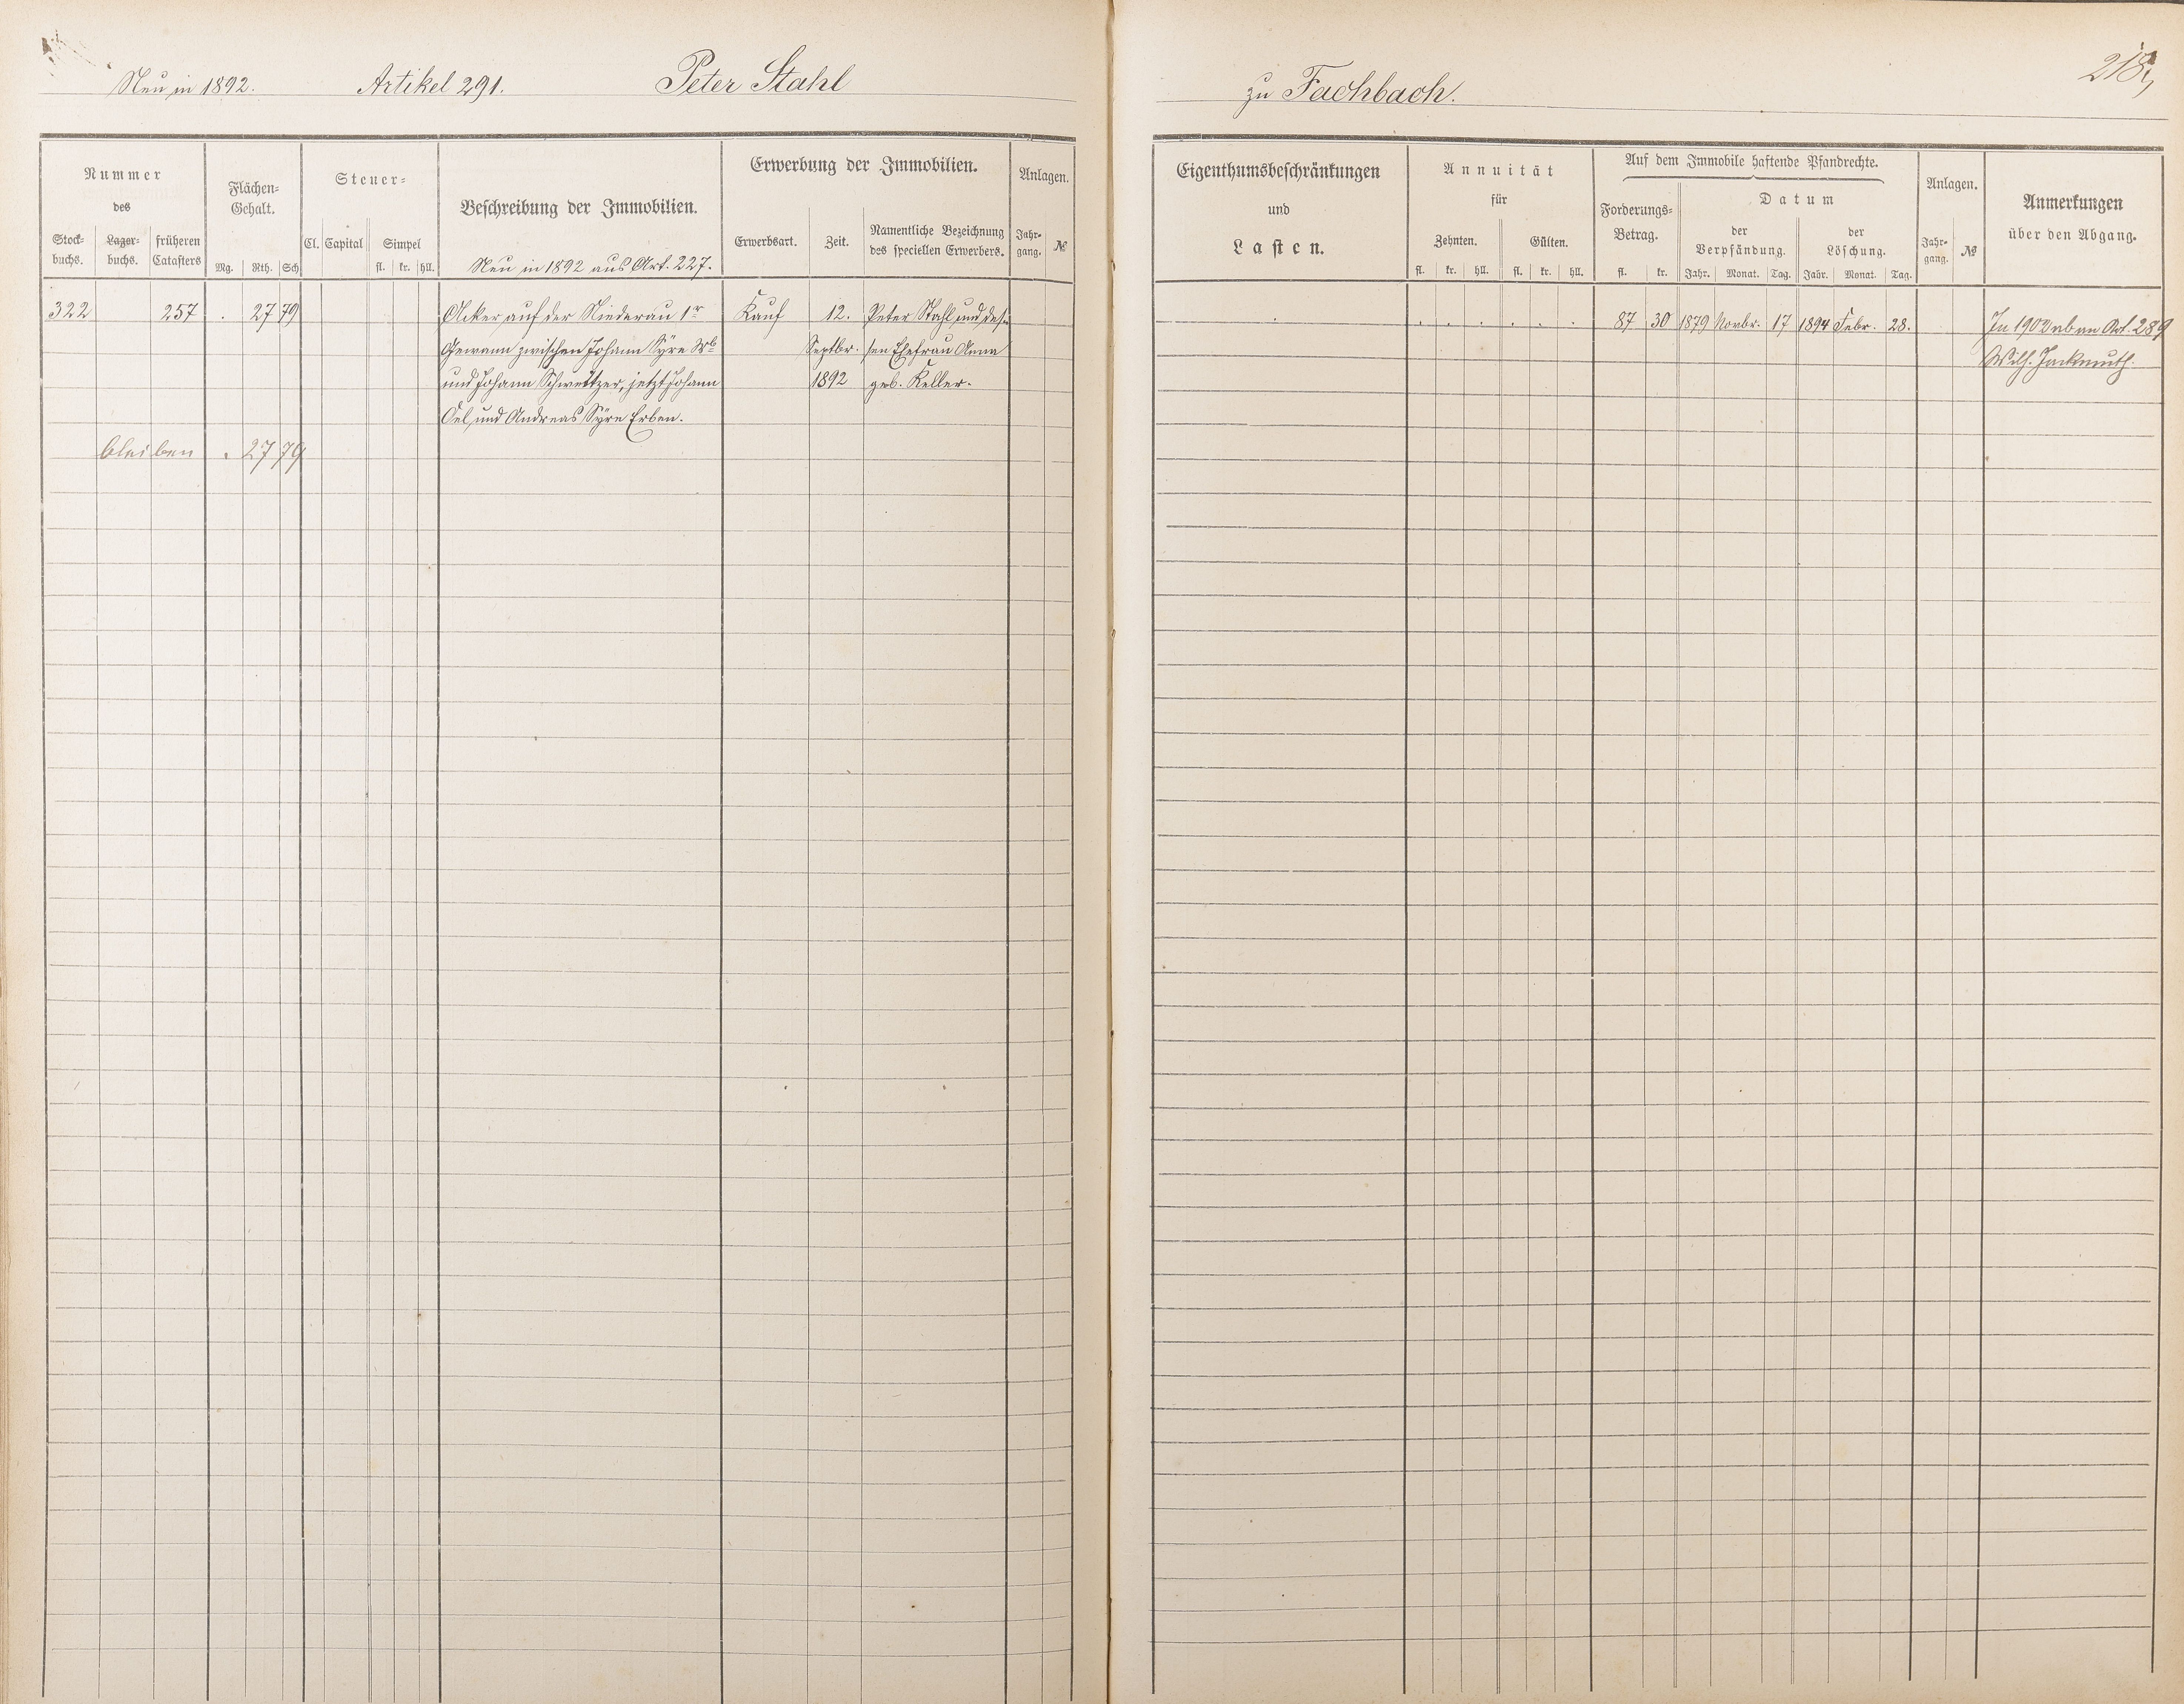 Neu in 1892. Artikel 291. Peter Stahl
zu Fachbach.
Nummer
des
Stock-
buchs.
Lager-
buchs.
früheren
Catasters
Flächen-
Gehalt.
Mg. Rth. Sch
Steuer-
Cl. Capital Simpel
fl. kr. hll.
Beschreibung der Immobilien.
Neu in 1892 aus Art. 227.
Erwerbung der Immobilien.
Erwerbsart. Zeit.
Namentliche Bezeichnung
des speciellen Erwerbers.
Anlagen.
Jahr-
gang.
№
322 257 . 27 79
Acker auf der Niederau 1r
Gewann zwischen Johann Syre
und Johann Schweitzer, jetzt Johann
Oel und Andreas Syre Erben.
Kauf
12.
Septbr.
1892
Peter Stahl und des-
sen Ehefrau Anna
geb. Keller.
bleiben . 27 79
Eigenthumsbeschränkungen
und
Lasten.
Annuität
für
Zehnten. Gülten.
fl. kr. hll. fl. kr. hll.
Auf dem Immobile haftende Pfandrechte.
Forderungs-
Betrag.
fl. kr.
Datum
der
Verpfändung.
Jahr. Monat. Tag.
der
Löschung.
Jahr. Monat. Tag.
Anlagen.
Jahr-
gang.
№
Anmerkungen
über den Abgang.
. . . . . . . 87 30 1879 Novbr. 17 1894 Febr. 28.
In 1902 ab an Art. 289
Wilh.